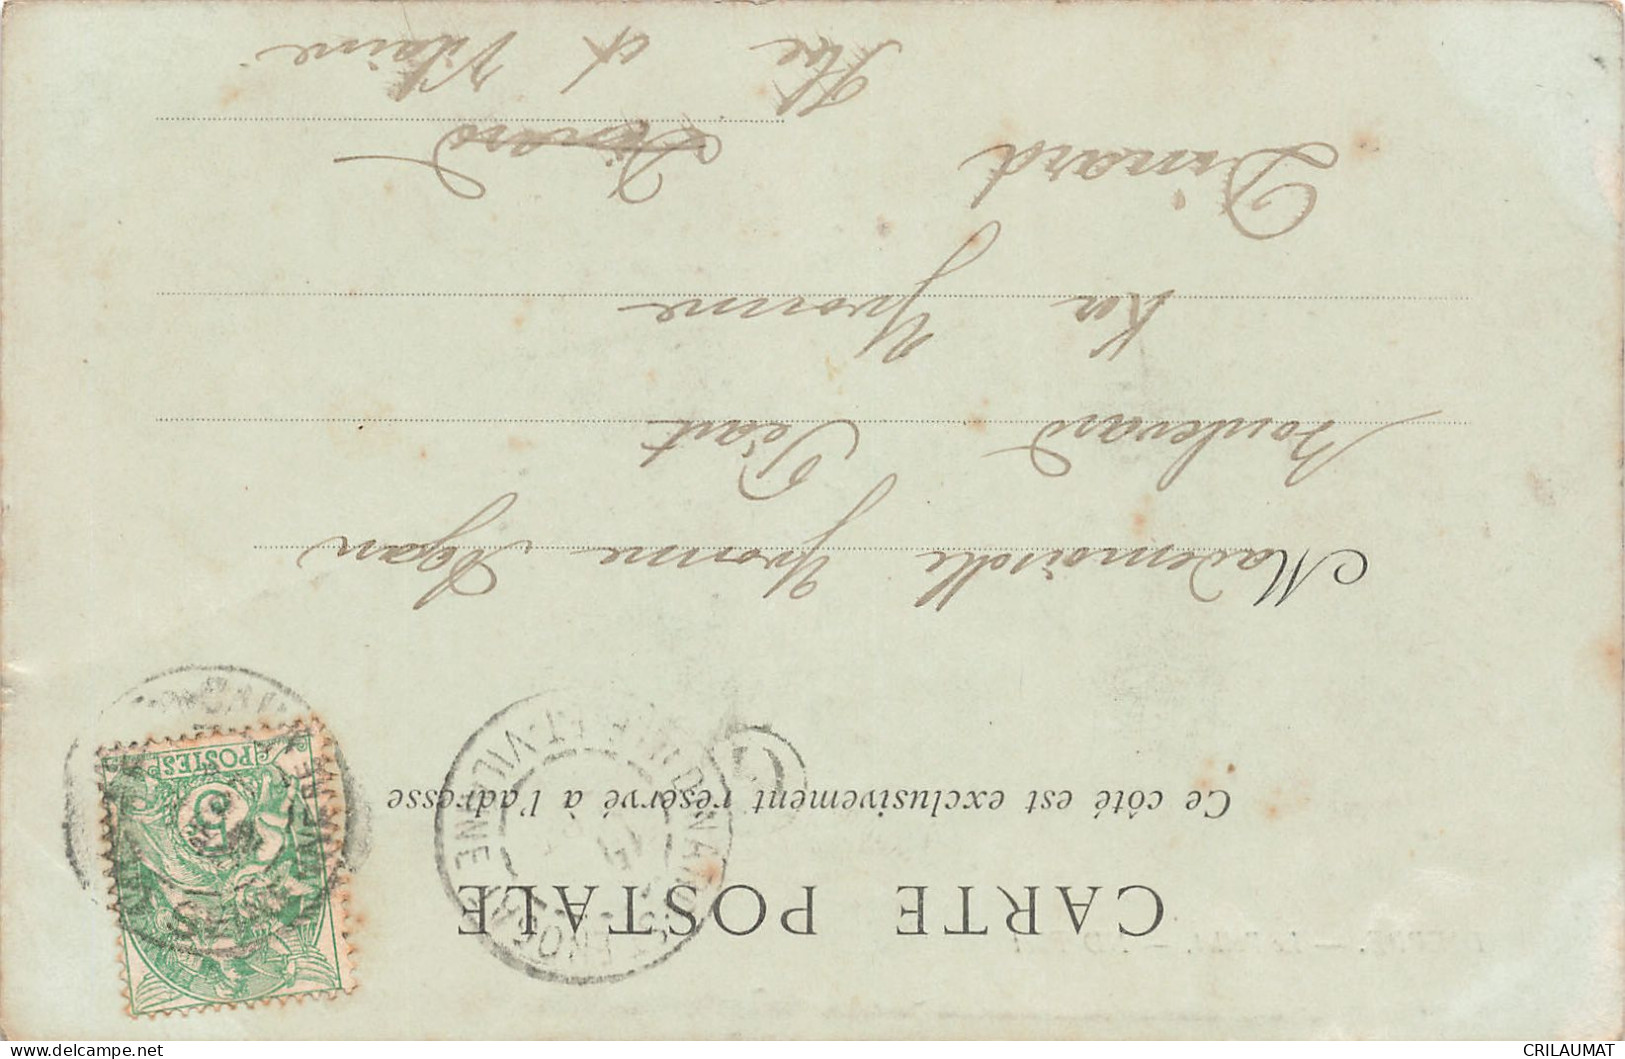 CARTE POSTALE
Ce côté est exclusivement réservé à l'adresse
Mademoiselle Yvonne Agan
Boulevard Féart
Ker Yvonne
Dinard
Dinard
Ille et Vilaine
POSTES
5
ILLE-ET-VILAINE
delcampe.net
CRILAUMAT